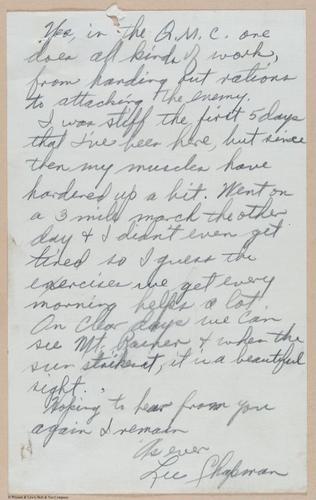 Yes, in the Q.M.C. one
does all kinds of work,
from handing out rations
to attacking the enemy.
I was stiff the first 5 days
that I've been here, but since
then my muscles have
hardened up a bit. Went on
a 3 mile march the other
day & I didn't even get
tired so I guess the
exercises we get every
morning helps a lot.
On clear days we can
see Mt. Rainer & when the
sun strikes it, it is a beautiful
sight.
Hoping to hear from you
again I remain
As ever
Lee